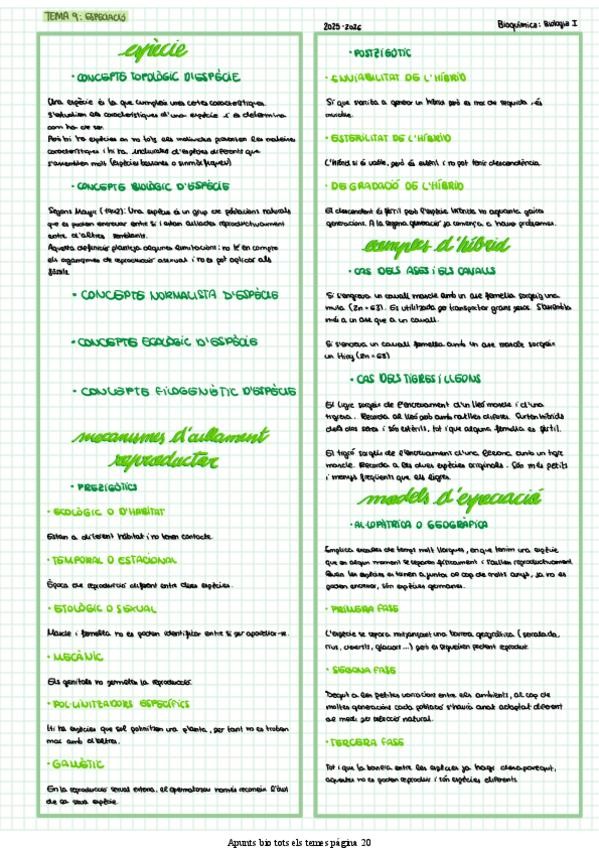 TEMA 9: ESPECIACIÓ
2025-2026
Bioquímica: Biologia I
espècie
· CONCEPTE TOPOLÒGIC D'ESPÈCIE
Una espècie és la que compleix unes certes característiques.
S'estudien les característiques d'una espècie i es determina
com ha de ser.
Però hi ha espècies on no tots els individus presenten les mateixes
característiques i hi ha individus d'espècies diferents que
s'assemblen molt (espècies bessones o sinmòrfiques)
· CONCEPTE BIOLÒGIC D'ESPÈCIE
Segons Mayr (1942): Una espècie és un grup de poblacions naturals
que es poden encreuar entre si i estan aïllades reproductivament
entre d'altres semblants.
Aquesta definició planteja algunes limitacions: no té en compte
els organismes de reproducció asexual i no es pot aplicar als
fòssils.
· CONCEPTE NORMALISTA D'ESPÈCIE
· CONCEPTE ECOLÒGIC D'ESPÈCIE
· CONCEPTE FILOGENÈTIC D'ESPÈCIE
mecanismes d'aïllament
reproductor
· PREZIGÒTICS
· ECOLÒGIC O D'HÀBITAT
Estan a diferent hàbitat i no tenen contacte.
· TEMPORAL O ESTACIONAL
Època de reproducció diferent entre dues espècies.
· ETOLÒGIC O SEXUAL
Mascle i femella no es poden identificar entre si per aparellar-se.
· MECÀNIC
Els genitals no permeten la reproducció.
· POL·LINITZADORS ESPECÍFICS
Hi ha espècies que sol pol·linitzen una planta, per tant no es troben
mai amb d'altres.
· GAMÈTIC
En la reproducció sexual externa, el spermatozou només reconeix l'òvul
de sa seva espècie.
· POSTZIGÒTIC
· ENVIABILITAT DE L'HÍBRID
Sí que s'arriba a generar un híbrid però es mor de seguida, és
inviable.
· ESTERILITAT DE L'HÍBRID
L'híbrid sí és viable, però és estèril i no pot tenir descendència.
· DEGRADACIÓ DE L'HÍBRID
El descendent és fèrtil però l'espècie híbrida no aguanta gaires
generacions. A la segona generació ja comença a haver problemes.
exemples d'híbrid
· CAS DELS ASES I ELS CAVALLS
Si s'encreua un cavall mascle amb un ase femella sorgeix una
mula (2n = 63). És utilitzada per transportar grans pesos. S'assembla
més a un ase que a un cavall.
Si s'encreua un cavall femella amb un ase mascle sorgeix
un Hiny (2n = 63)
· CAS DELS TIGRES I LLEONS
El ligre sorgeix de l'encreuament d'un lleó mascle i d'una
tigressa. Recorda al lleó amb ratlles difuses.
dels dos sexes i són estèrils, tot i que alguna femella és fèrtil.
El tigó sorgeix de l'encreuament d'una lleona amb un tigre
mascle. Recorda a les dues espècies originals. Són més petits
i menys freqüents que els ligres.
models d'especiació
· AL·LOPÀTRICA O GEOGRÀFICA
Implica escales de temps molt llargues, en que tenim una espècie
que en algun moment se separen físicament i s'aïllen reproductivament.
Quan les espècies es tornen a ajuntar al cap de molts anys, ja no es
poden encreuar, són espècies germanes.
· PRIMERA FASE
L'espècie se separa mitjançant una barrera geogràfica (
rius, deserts, glaciar...) però es segueixen podent reproduir.
· SEGONA FASE
Degut a les petites variacions entre els ambients, al cap de
moltes generacions cada població s'haurà anat adaptat diferent
al medi per selecció natural.
· TERCERA FASE
Tot i que la barrera entre les espècies ja hagi desaparegut,
aquestes no es poden reproduir i són espècies diferents
Apunts bio tots els temes página 20